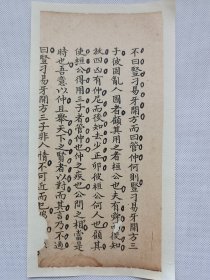 不曰豎刁易牙開方而曰管仲何則豎刁易牙開方三
子彼固亂人國者顧其用之者桓公也夫有舜而後知
放四凶有仲尼而後知去少正卯彼桓公何人也顧其
使桓公得用三子者管仲也仲之疾也公問之相當是
時也吾意以仲且舉天下之賢者以對而其言乃不過
曰豎刁易牙開方三子非人情不可近而已